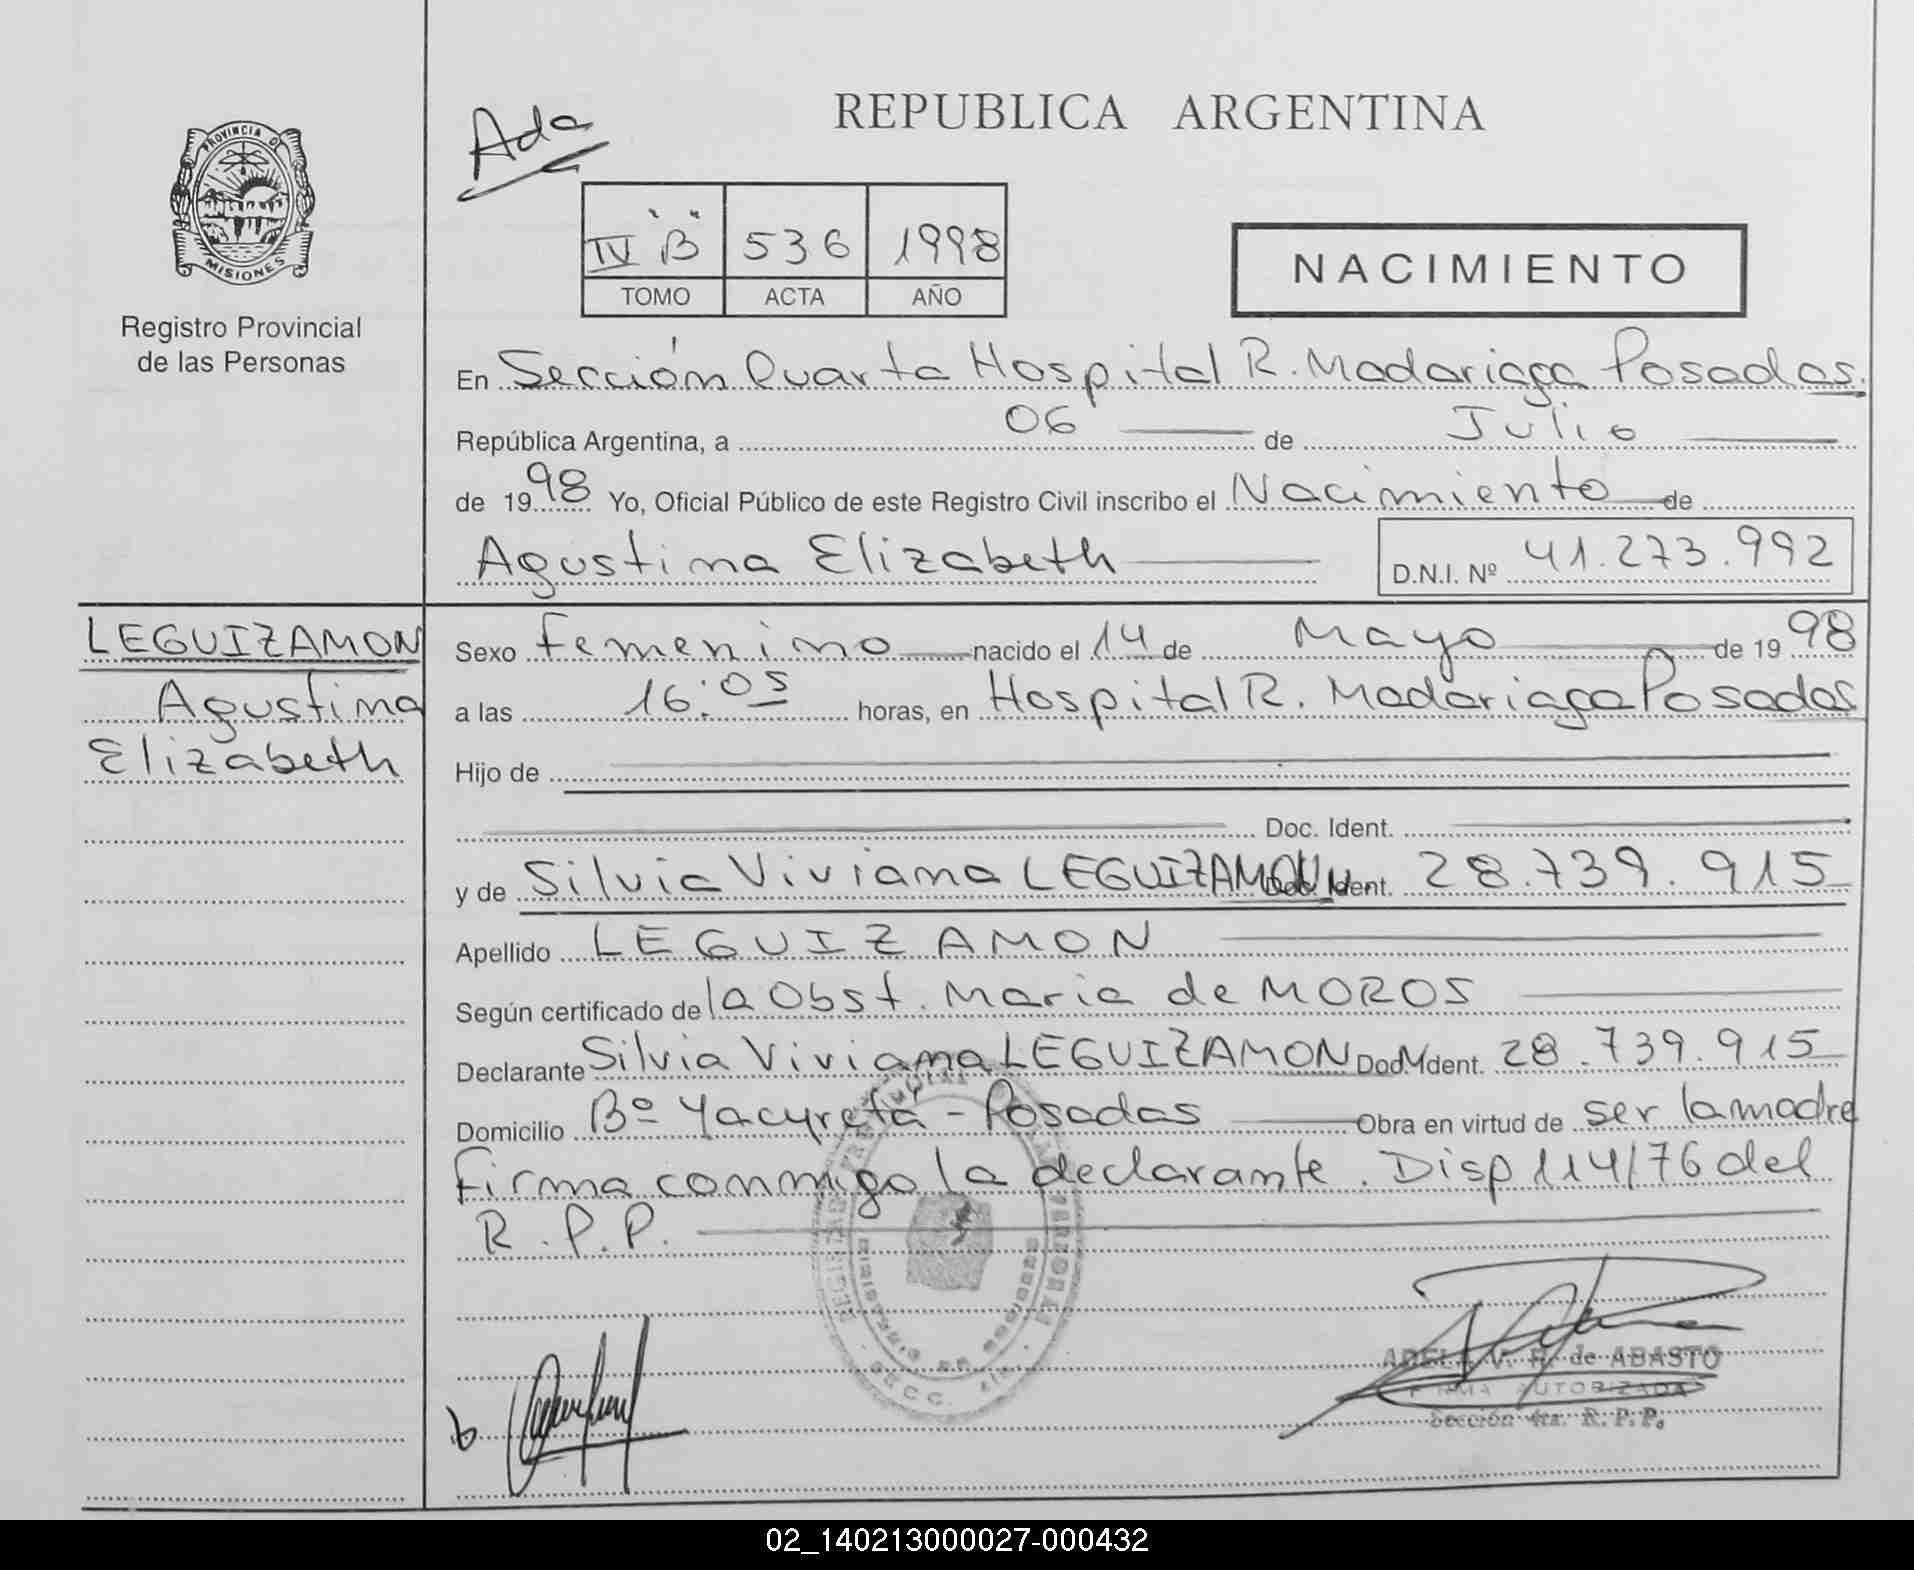 PROVINCIA DE
MISIONES
Registro Provincial
de las Personas
Ada
REPUBLICA ARGENTINA
IV "B" 536 1998
TOMO ACTA AÑO
NACIMIENTO
En Sección Cuarta Hospital R. Madariaga Posadas.
República Argentina, a 06 de Julio
de 1998 Yo, Oficial Público de este Registro Civil inscribo el Nacimiento de
Agustina Elizabeth D.N.I. Nº 41.273.992
LEGUIZAMON
Agustina
Elizabeth
Sexo Femenino nacido el 14 de Mayo de 1998
a las 16:05 horas, en Hospital R. Madariaga Posadas
Hijo de
Doc. Ident.
y de Silvia Viviana LEGUIZAMON Doc. Ident. 28.739.915
Apellido LEGUIZAMON
Según certificado de la Obst. Maria de MOROS
Declarante Silvia Viviana LEGUIZAMON Doc. Ident. 28.739.915
Domicilio Bº Yacyretá - Posadas Obra en virtud de ser la madre
Firma conmigo la declarante. Disp 114/76 del
R.P.P.
ADELA V. R. de ABASTO
FIRMA AUTORIZADA
Sección 4ta. R.P.P.
02_140213000027-000432